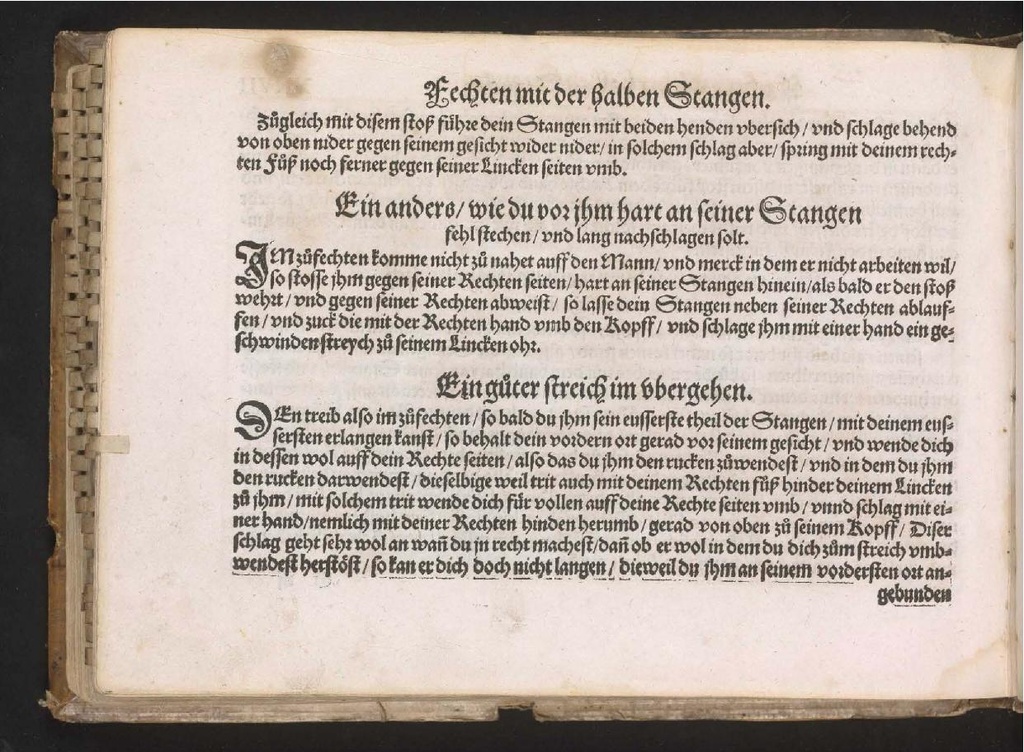 Fechten mit der halben Stangen.
Zůgleich mit disem stoß führe dein Stangen mit beiden henden vbersich / vnd schlage behend
von oben nider gegen seinem gesicht wider nider / in solchem schlag aber / spring mit deinem rech-
ten Fůß noch ferner gegen seiner Lincken seiten vmb.
Ein anders / wie du vor jhm hart an seiner Stangen
fehl stechen / vnd lang nachschlagen solt.
IM zůfechten komme nicht zů nahet auff den Mann / vnd merck in dem er nicht arbeiten wil /
so stosse jhm gegen seiner Rechten seiten / hart an seiner Stangen hinein / als bald er den stoß
wehrt / vnd gegen seiner Rechten abweist / so lasse dein Stangen neben seiner Rechten ablauf-
fen / vnd zuck die mit der Rechten hand vmb den Kopff / vnd schlage jhm mit einer hand ein ge-
schwinden streych zů seinem Lincken ohr.
Ein gůter streich im vbergehen.
DEn treib also im zůfechten / so bald du jhm sein eusserste theil der Stangen / mit deinem eus-
sersten erlangen kanst / so behalt dein vordern ort gerad vor seinem gesicht / vnd wende dich
in dessen wol auff dein Rechte seiten / also das du jhm den rucken zůwendest / vnd in dem du jhm
den rucken darwendest / dieselbige weil trit auch mit deinem Rechten fůß hinder deinem Lincken
zů jhm / mit solchem trit wende dich für vollen auff deine Rechte seiten vmb / vnnd schlag mit ei-
ner hand / nemlich mit deiner Rechten hinden herumb / gerad von oben zů seinem Kopff / Diser
schlag geht sehr wol an wañ du jn recht machest / dañ ob er wol in dem du dich zům streich vmb-
wendest herstöst / so kan er dich doch nicht langen / dieweil du jhm an seinem vordersten ort an-
gebunden